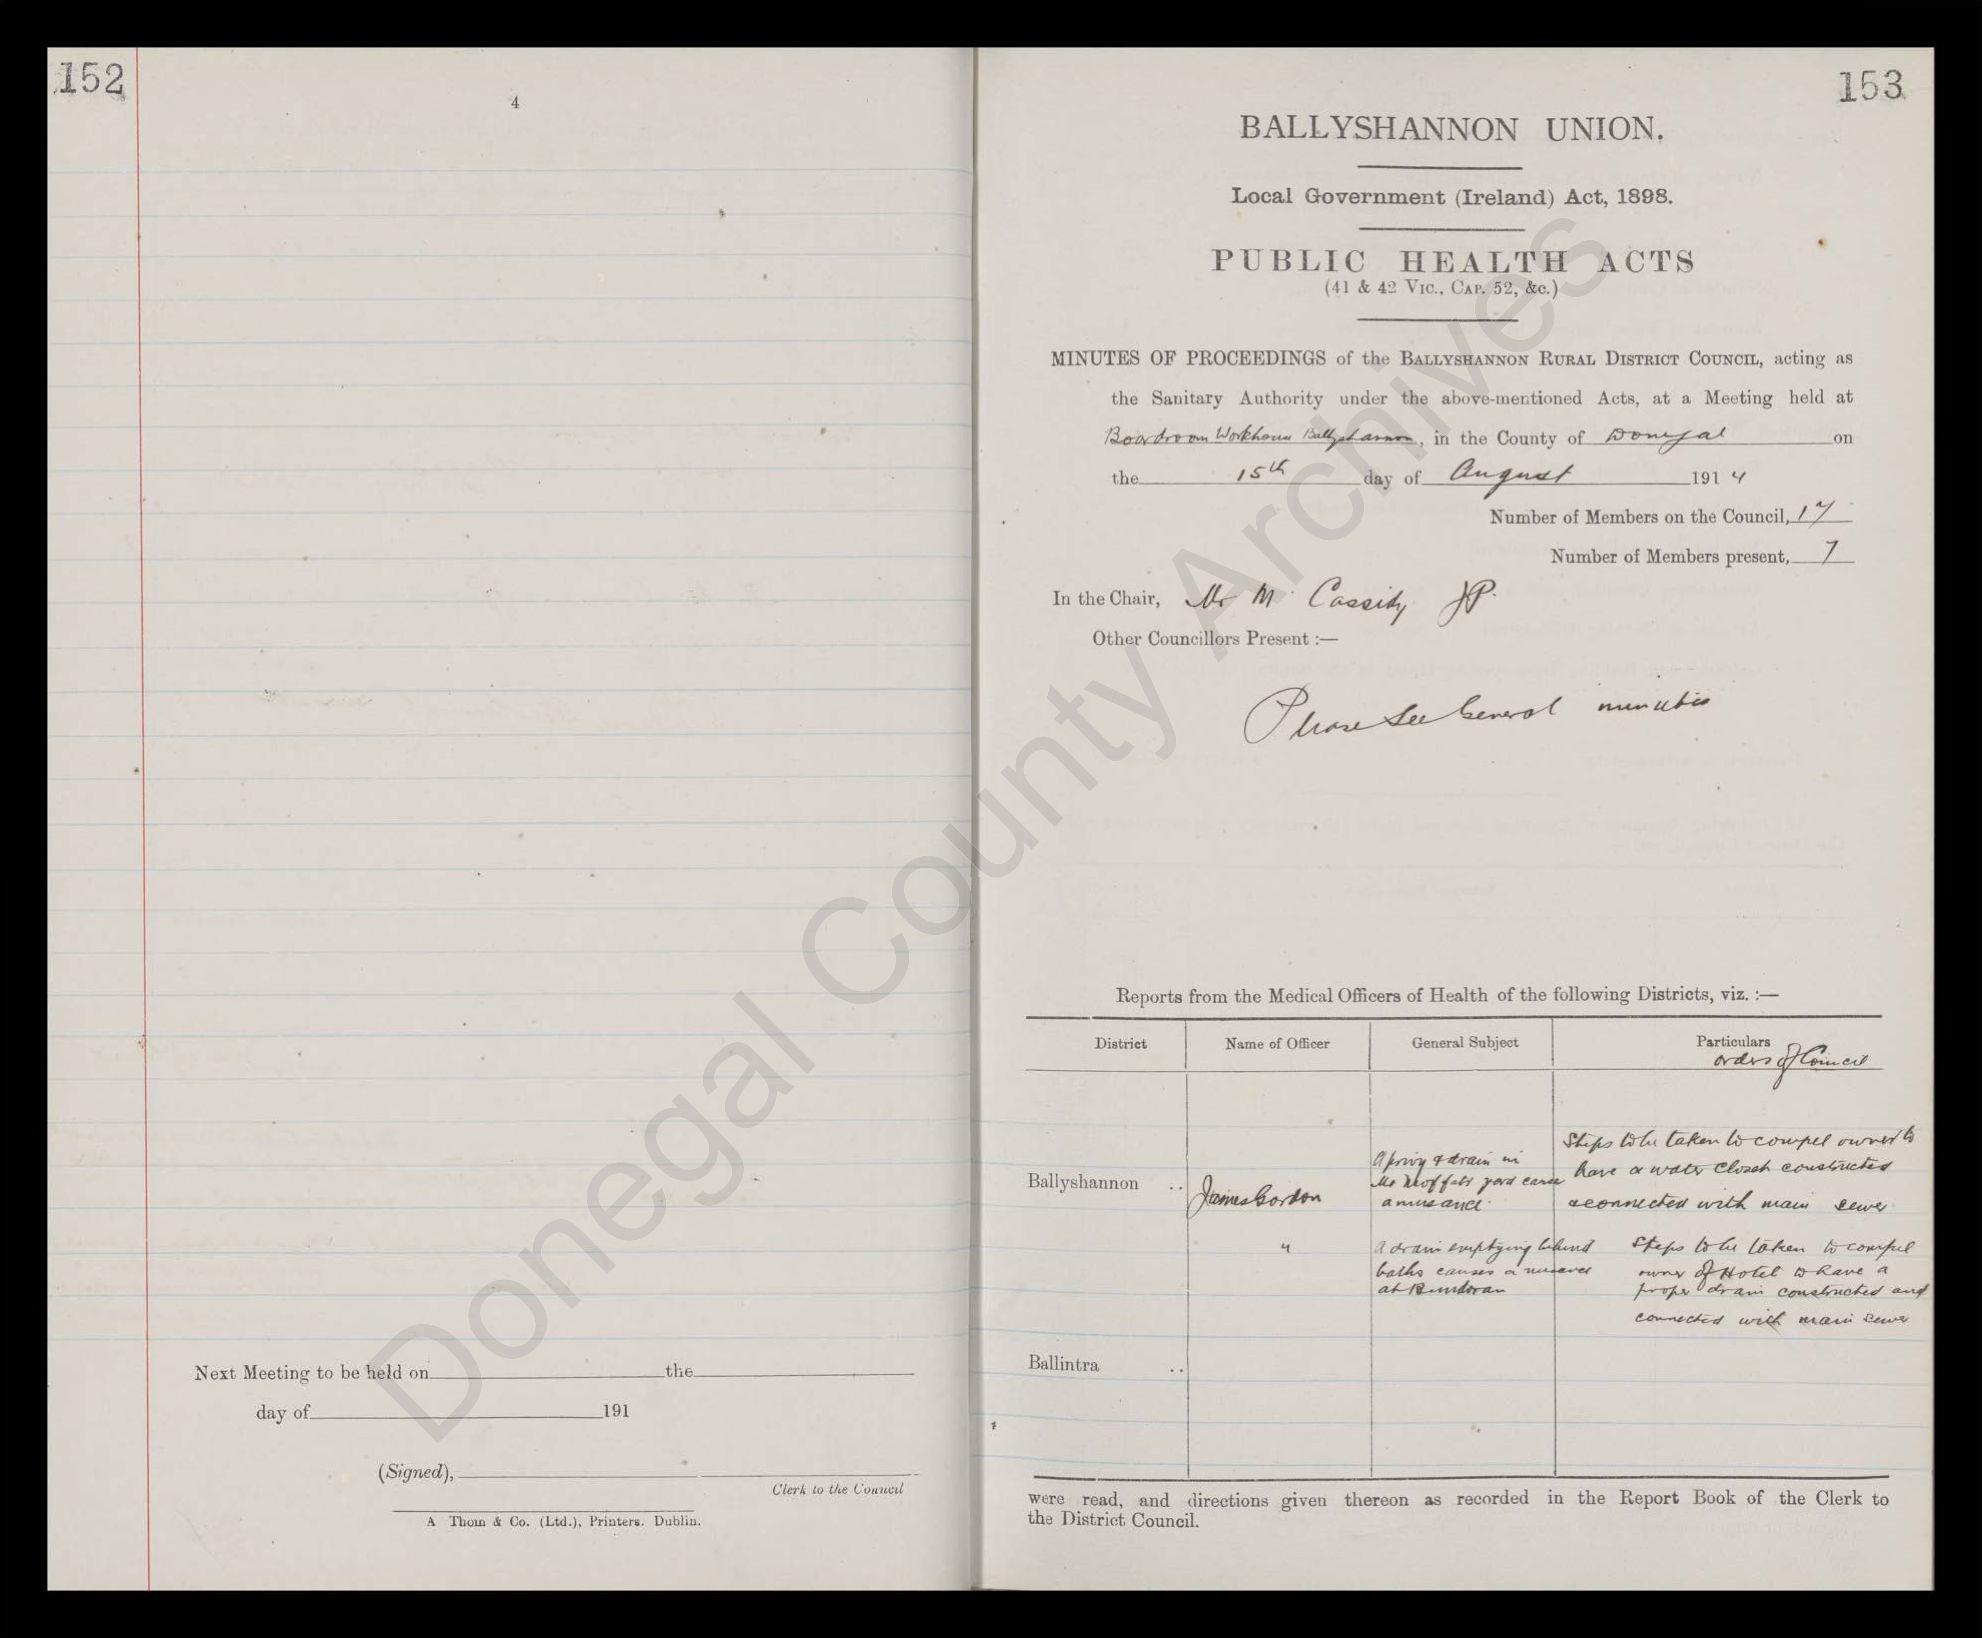 152
4
Next Meeting to be held on the
day of 191
(Signed),
Clerk to the Council
A Thom & Co. (Ltd.), Printers. Dublin.
153
BALLYSHANNON UNION.
Local Government (Ireland) Act, 1898.
PUBLIC HEALTH ACTS
(41 & 42 VIC., CAP. 52, &c.)
MINUTES OF PROCEEDINGS of the BALLYSHANNON RURAL DISTRICT COUNCIL, acting as
the Sanitary Authority under the above-mentioned Acts, at a Meeting held at
Boardroom Workhouse Ballyshannon, in the County of Donegal on
the 15th day of August 1914
Number of Members on the Council, 17
Number of Members present, 7
In the Chair, Mr M. Cassidy JP.
Other Councillors Present :—
Please See General minutes
Reports from the Medical Officers of Health of the following Districts, viz. :—
District Name of Officer General Subject Particulars
orders of Council
Ballyshannon .. James Gordon
A privy & drain in
Mr Moffats yard cause
a nuisance.
Steps to be taken to compel owner to
have a water closet constructed
& connected with main sewer
"
A drain emptying behind
baths causes a nuisance
at Bundoran
Steps to be taken to compel
owner of Hotel to have a
proper drain constructed and
connected with main sewer
Ballintra ..
were read, and directions given thereon as recorded in the Report Book of the Clerk to
the District Council.
Donegal County Archives